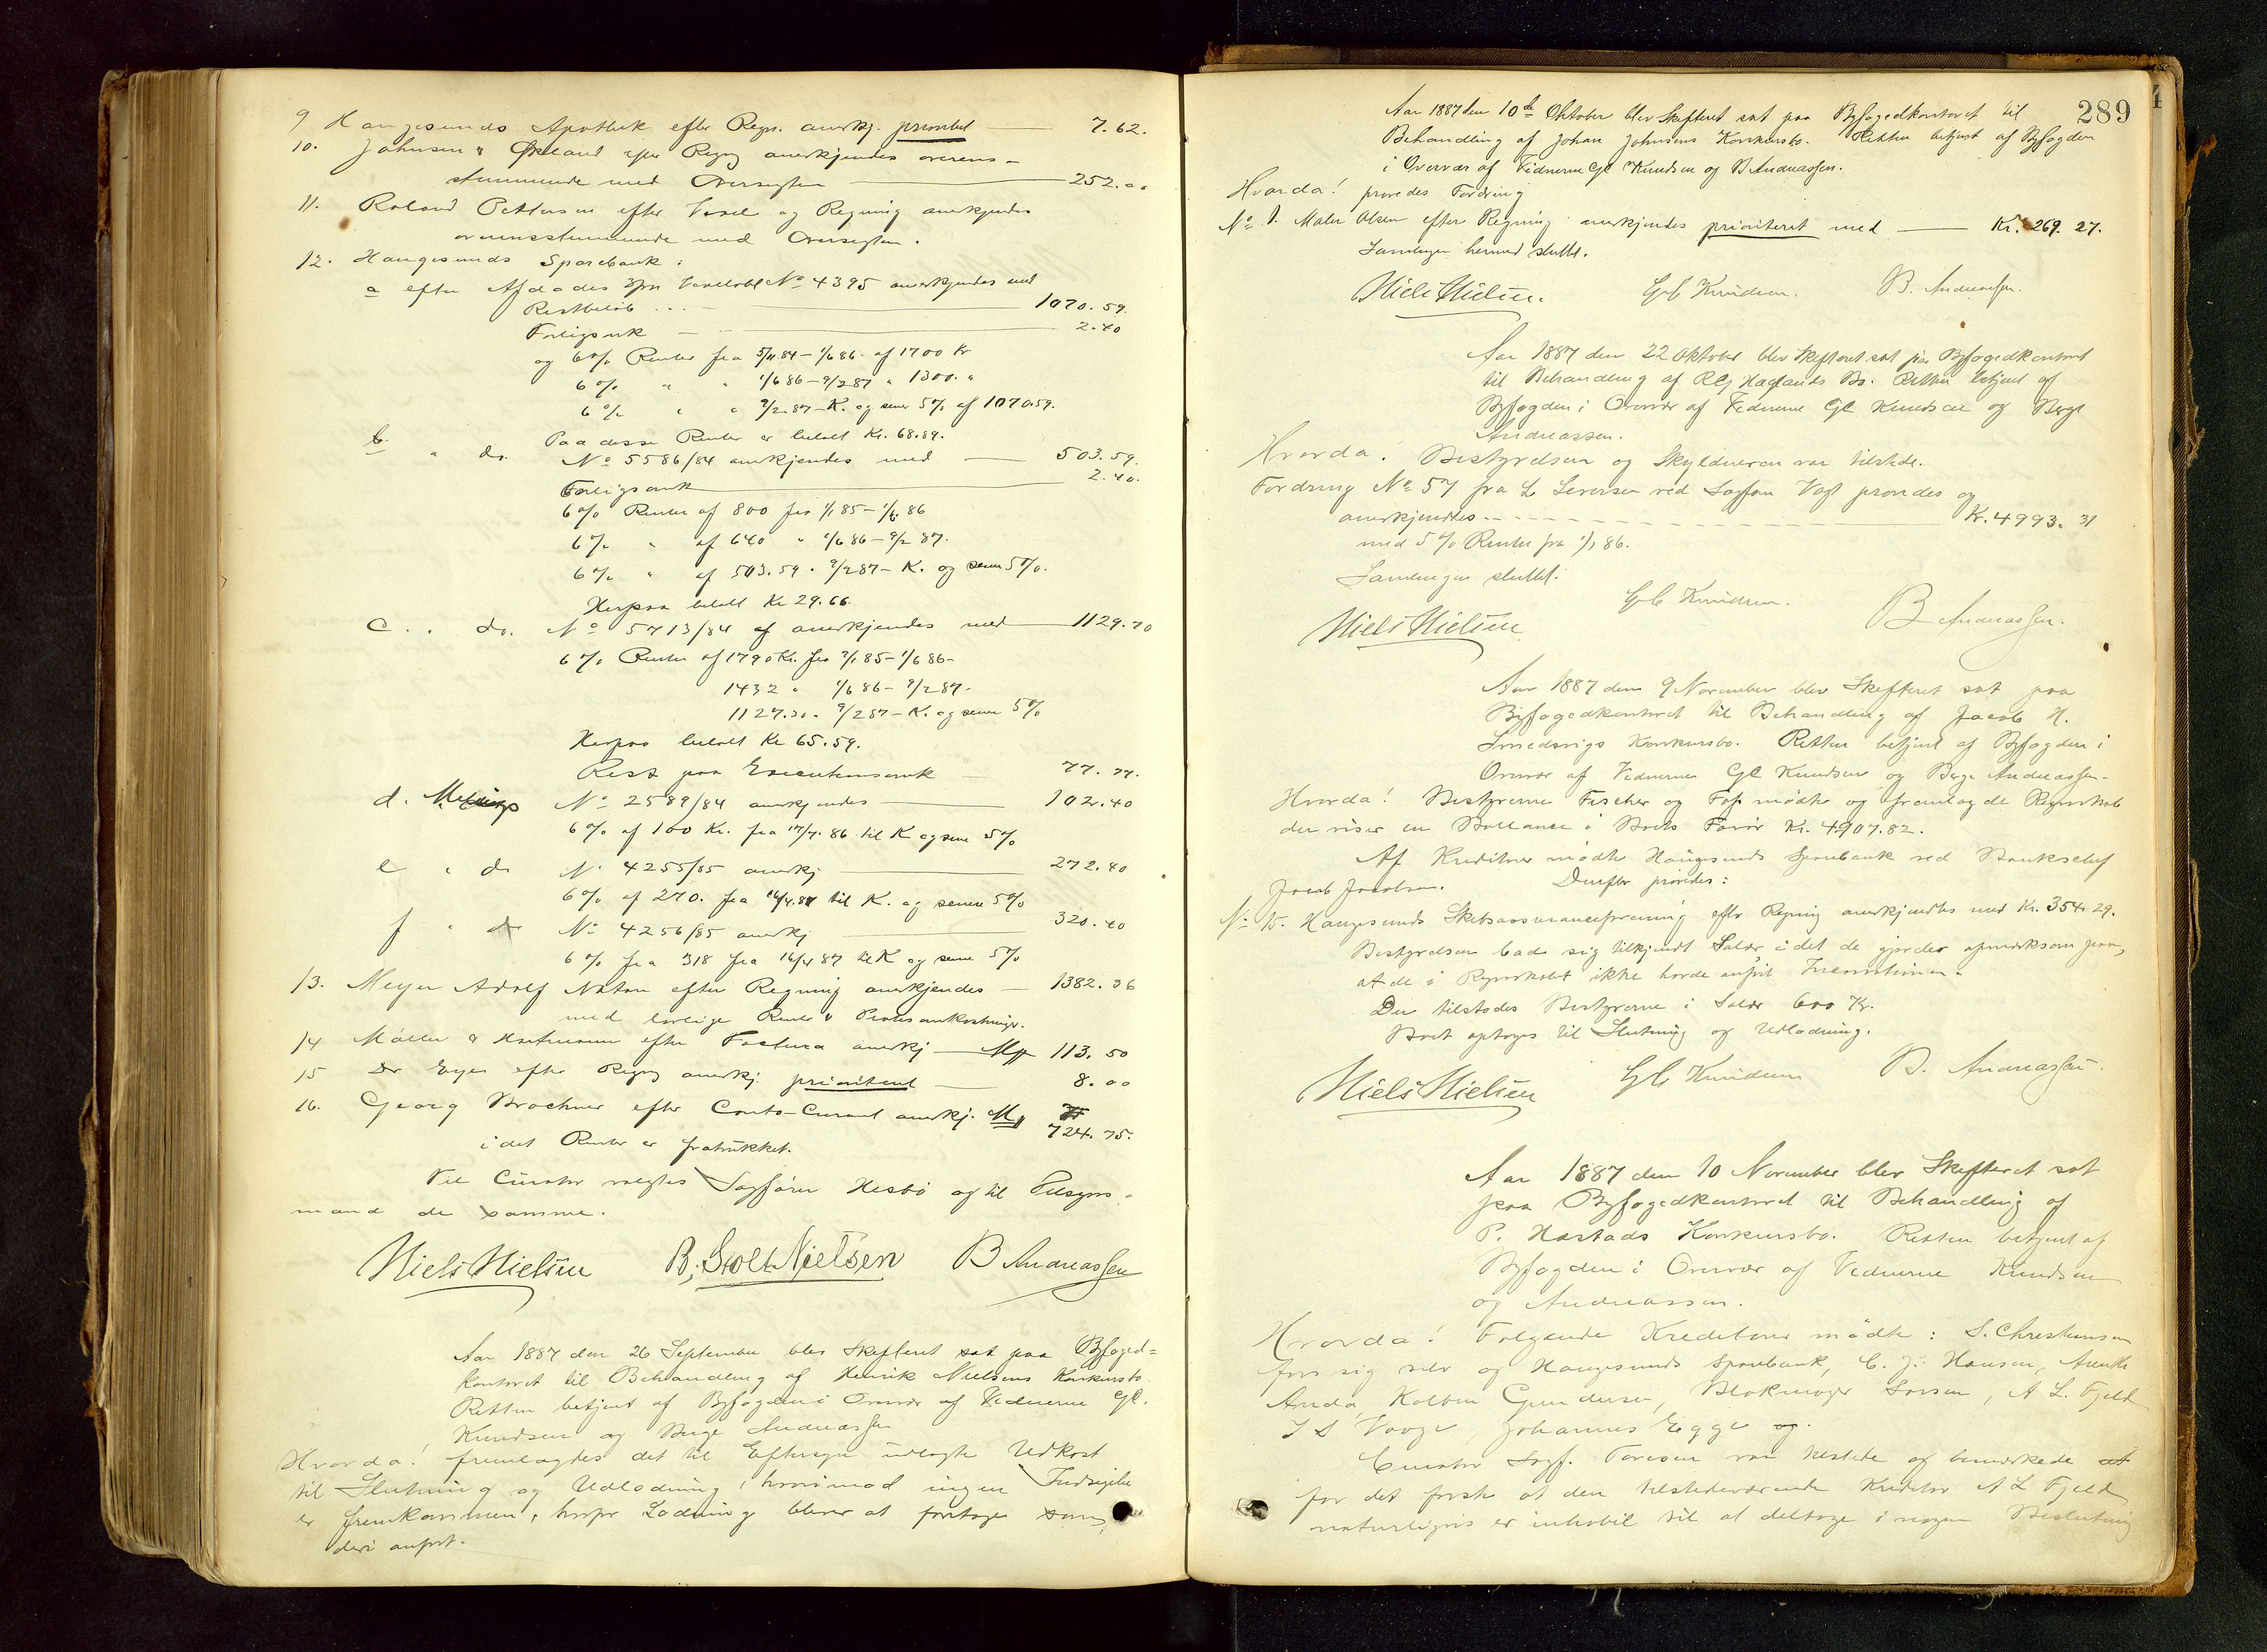 9 Haugesunds Apothek efter Regn. anerkj. prioritet 7.62.
10. Johnsen & Økland efter Regng anerkjendes overens-
stemmende med Oversigten 252.00
11. Roland Pettersen efter Vexel og Regning anerkjendes
overensstemmende med Oversigten.
12. Haugesunds Sparebank:
a efter Afdødes Vexelobl No 4395 anerkjendes med
Restbeløb 1070.59.
Forligsomk 2.40
og 6% Renter fra 5/11 84 - 1/6 86 af 1700 Kr
6% " " 1/6 86 - 9/2 87 " 1300. "
6% " " 9/2 87 - K. og senere 5% af 1070.59.
Paa disse Renter er betalt Kr. 68.89.
b " do. No 5586/84 anerkjendes med 503.59.
Forligsomk 2.40.
6% Renter af 800 fra 1/1 85 - 1/6 86
6% " af 640 " 1/6 86 - 9/2 87.
6% " af 503.59 " 9/2 87 - K. og senere 5%.
Herpaa betalt Kr 29.66.
c " do. No 5713/84 af anerkjendes med 1129.70
6% Renter af 1790 Kr. fra 2/1 85 - 1/6 86 -
1432 " 1/6 86 - 9/2 87 -
1127.30 " 9/2 87 - K. og senere 5%
Herpaa betalt Kr 65.59.
Rest paa Executionsomk 77.77.
d. No 2589/84 anerkjendes 102.40
6% af 100 Kr. fra 17/7. 86 til K og senere 5%
e " do No 4255/85 anerkj 272.40
6% af 270. fra 16/4. 87 til K. og senere 5%
f " do No 4256/85 anerkj 320.40
6% fra 318 fra 16/4 87 til K og senere 5%
13. Meyer Adolf Natan efter Regning anerkjendes 1382.36
med lovlige Renter & Protestomkostninger.
14 Møller & efter Factura anerkj 113.50
15 Dr Eyer efter Regng anerkj. prioritert 8.00
16. Georg Brochner efter Conto-Curant anerkj. 724.75.
idet Renter er fratrukket.
Til Curator valgtes Sagfører Hesbø og til Tilsyns-
mænd de samme.
Niels Nielsen B. Stolt-Nielsen B Andreassen
Aar 1887 den 26 September blev Skifteret sat paa Byfoged-
kontoret til Behandling af Henrik Nielsens Konkursbo
Retten betjent af Byfogden i Overvær af Vidnerne Gl.
Knudsen og Berge Andreassen
Hvorda! fremlagdes det til Eftersyn udlagte Udkast
til Slutning og Udlodning, hvorimod ingen Indsigelse
er fremkommen, hvorfor Lodning bliver at foretage som
deri anført.
289
Aar 1887 den 10de Oktober blev Skifteret sat paa Byfogedkontoret til
Behandling af Johan Johnsens Konkursbo. Retten betjent af Byfogden
i Overvær af Vidnerne Gl Knudsen og B Andreassen.
Hvorda! prøvedes Fordring
No 1. Maler Olsen efter Regning anerkjendes prioriteret med Kr. 269.27.
Samlingen hermed sluttet.
Niels Nielsen. Gl Knudsen. B. Andreassen.
Aar 1887 den 22 Oktober blev Skifteret sat paa Byfogedkontoret
til Behandling af R G Haglands Bo. Retten betjent af
Byfogden i Overvær af Vidnerne Gl Knudsen og Berge
Andreassen.
Hvorda! Bestyrelsen og Skyldneren var tilstede.
Fordring No 57 fra L Seversen ved Sagfører Vogt prøvedes og
anerkjendtes Kr. 4993.31
med 5% Renter fra 1/1 86.
Samlingen sluttet.
Niels Nielsen Gl Knudsen. B Andreassen.
Aar 1887 den 9 November blev Skifteret sat paa
Byfogedkontoret til Behandling af Jacob H.
Smedsvigs Konkursbo. Retten betjent af Byfogden i
Overvær af Vidnerne Gl Knudsen og Berge Andreassen.
Hvorda! Bestyrerne Fischer og mødte og fremlagde Regnskab
der viser en Ballance i Boets Favør Kr. 4907.82.
Af Kreditorer mødte Haugesunds Sparebank ved Bankchef
Jacob Jacobsen. Derefter prøvedes:
No 15. Haugesunds Skibsassuranceforening efter Regning anerkjendtes med Kr. 354.29.
Bestyrelsen bad sig tilkjendt Salær, idet de gjordes opmærksom paa,
at de i Regnskabet ikke havde anført
Der tilstodes Bestyrerne i Salær 600 Kr.
Boet optages til Slutning og Udlodning.
Niels Nielsen Gl Knudsen B. Andreassen.
Aar 1887 den 10 November blev Skifteret sat
paa Byfogedkontoret til Behandling af
P. Hastads Konkursbo. Retten betjent af
Byfogden i Overvær af Vidnerne Knudsen
og Andreassen.
Hvorda! Følgende Kreditorer mødte: S. Christensen
for sig selv og Haugesunds Sparebank, C. J. Hansen,
Anda, Kolben Gundersen, Blokmager Larsen, A L. Fjeld
I S Vaage Johannes Egge og.
Curator Sagf. Toresen var tilstede og bemærkede at
for det første at den tilstedeværende Kreditor A L Fjeld
naturligvis er inhabil til at deltage i nogen Beslutning